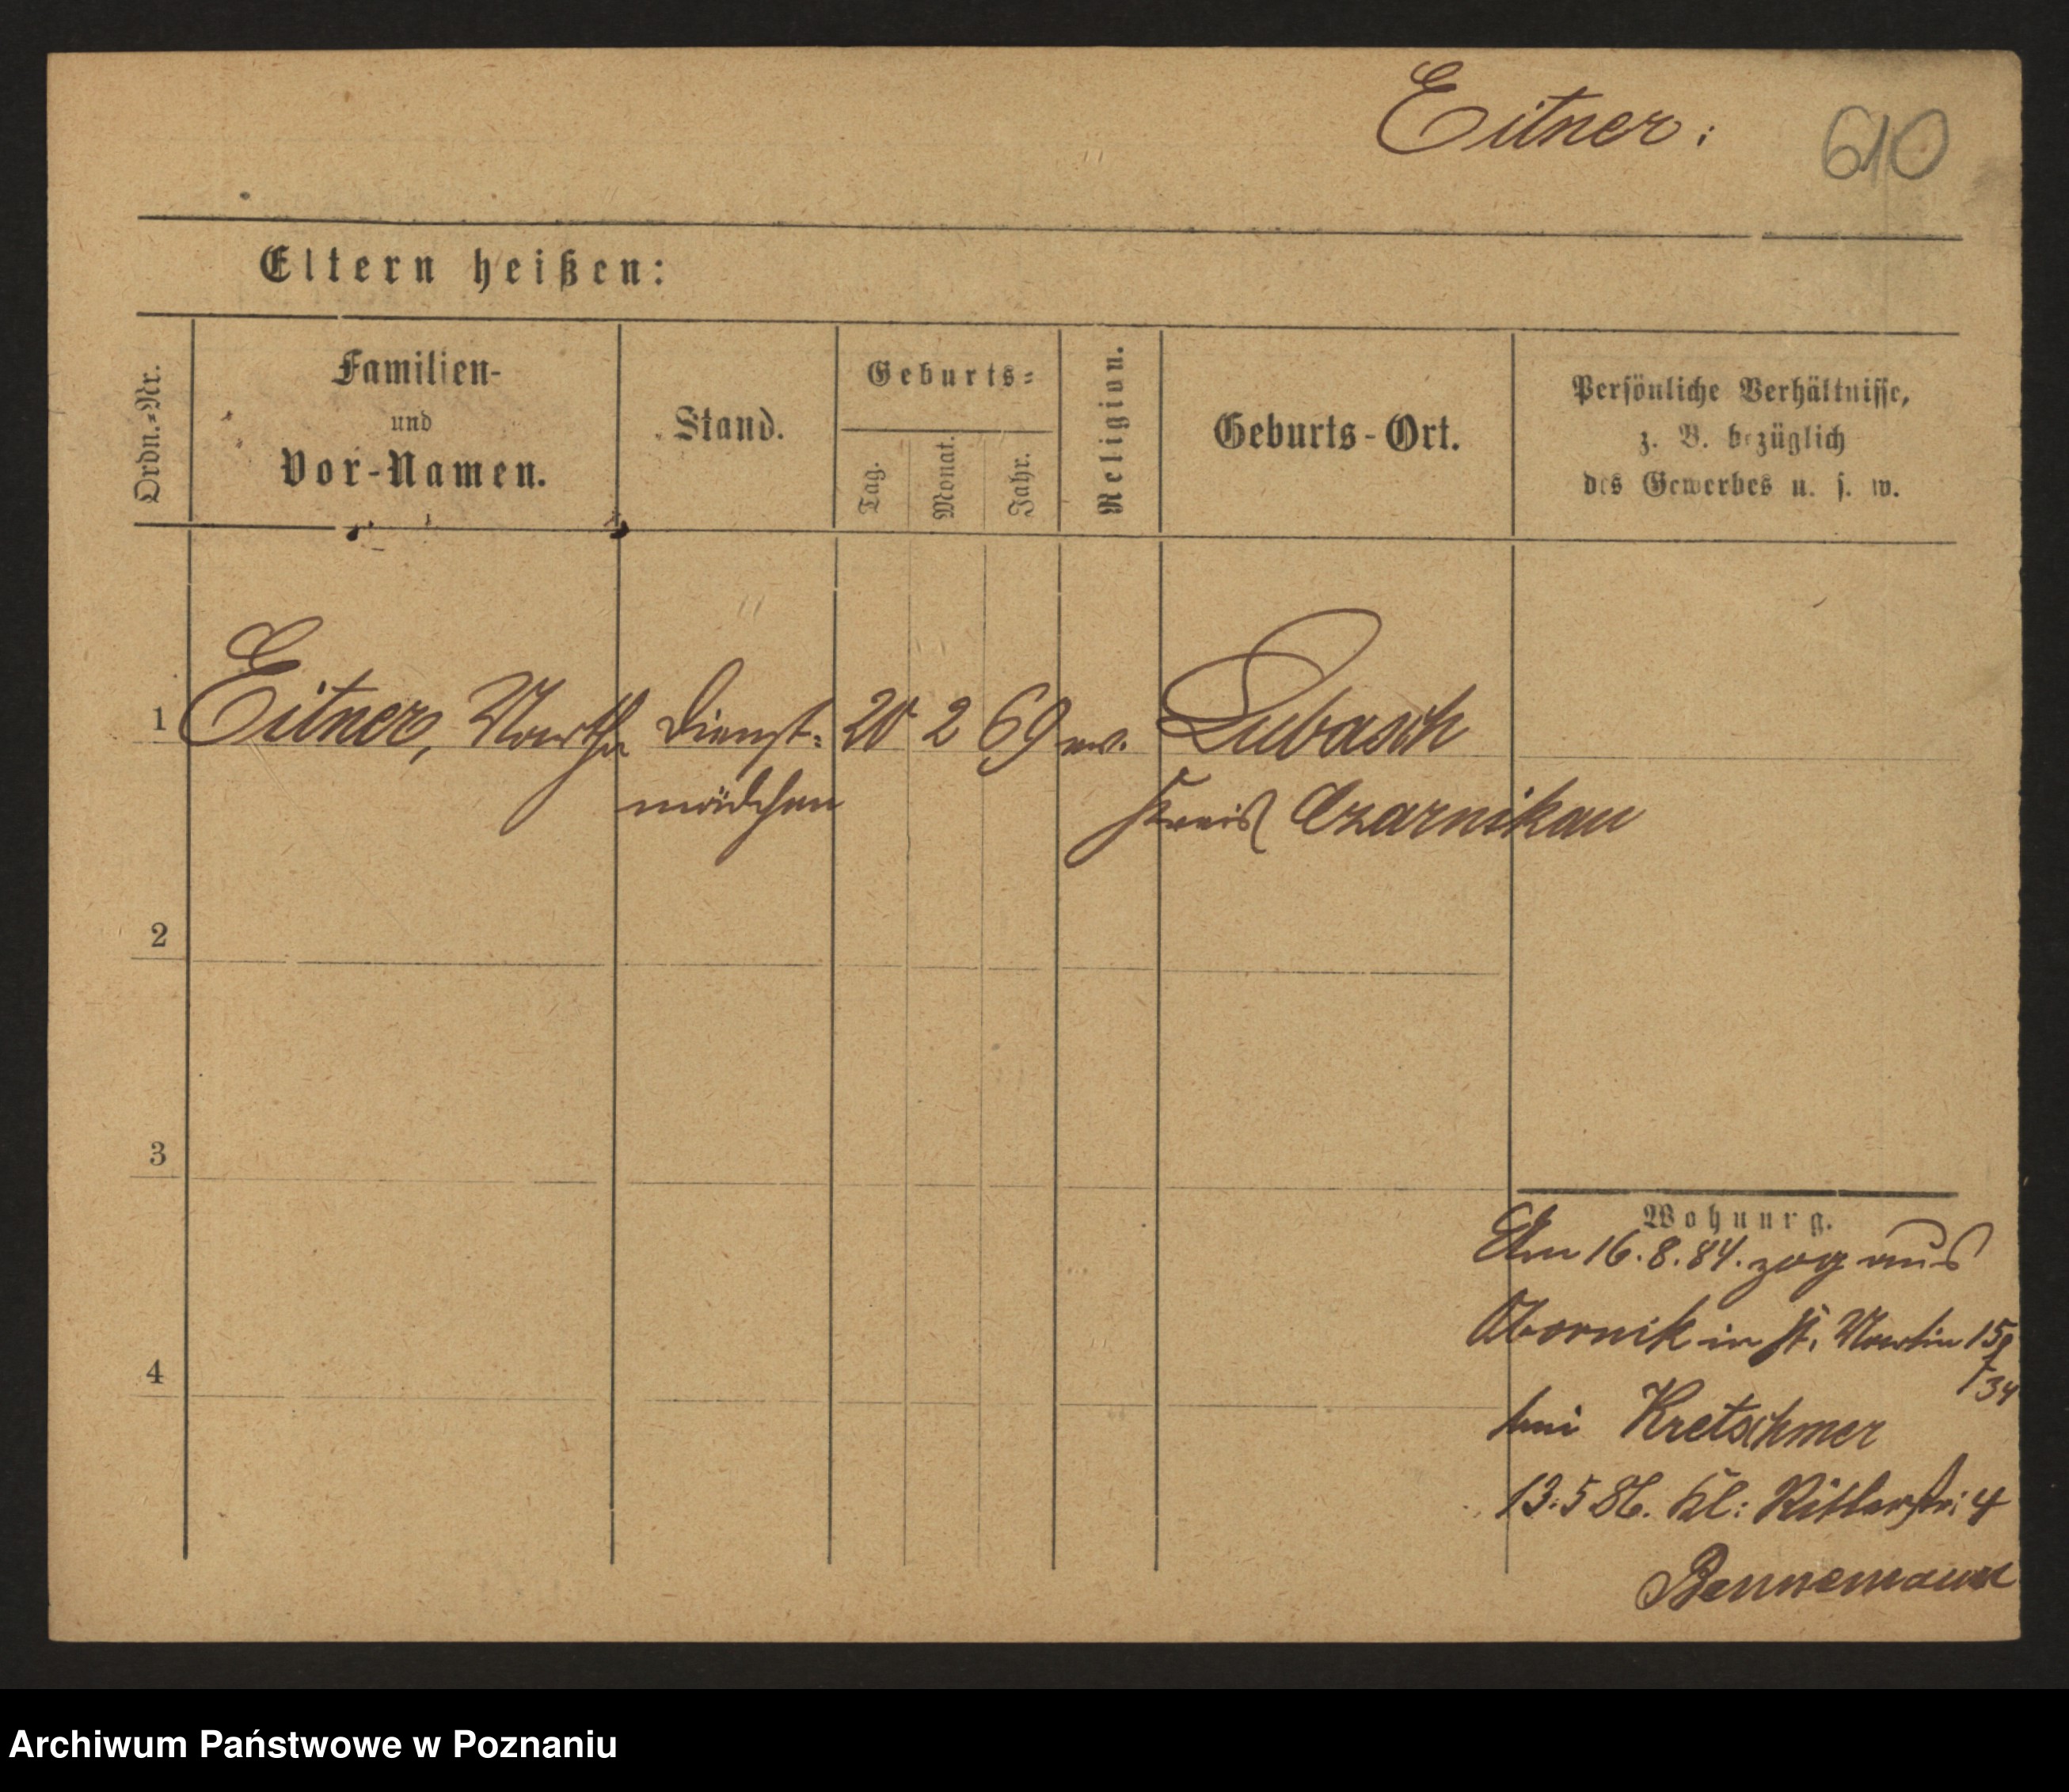 Eitner:
610
Eltern heißen:
Ordn.-Nr.
Familien-
und
Vor-Namen.
Stand.
Geburts-
Tag.
Monat.
Jahr.
Religion.
Geburts-Ort.
Persönliche Verhältnisse,
z. B. bezüglich
des Gewerbes u. s. w.
1 Eitner, Martha Dienst- 20 2 69 ev. Lubasch
mädchen Kreis Czarnikau
2
3
4
Wohnung.
Am 16.8.84. zog aus
Obornik in St. Martin 15/
34
bei Kretschmer
13.5 86. Kl: Ritterstr: 4
Bennemann
Archiwum Państwowe w Poznaniu